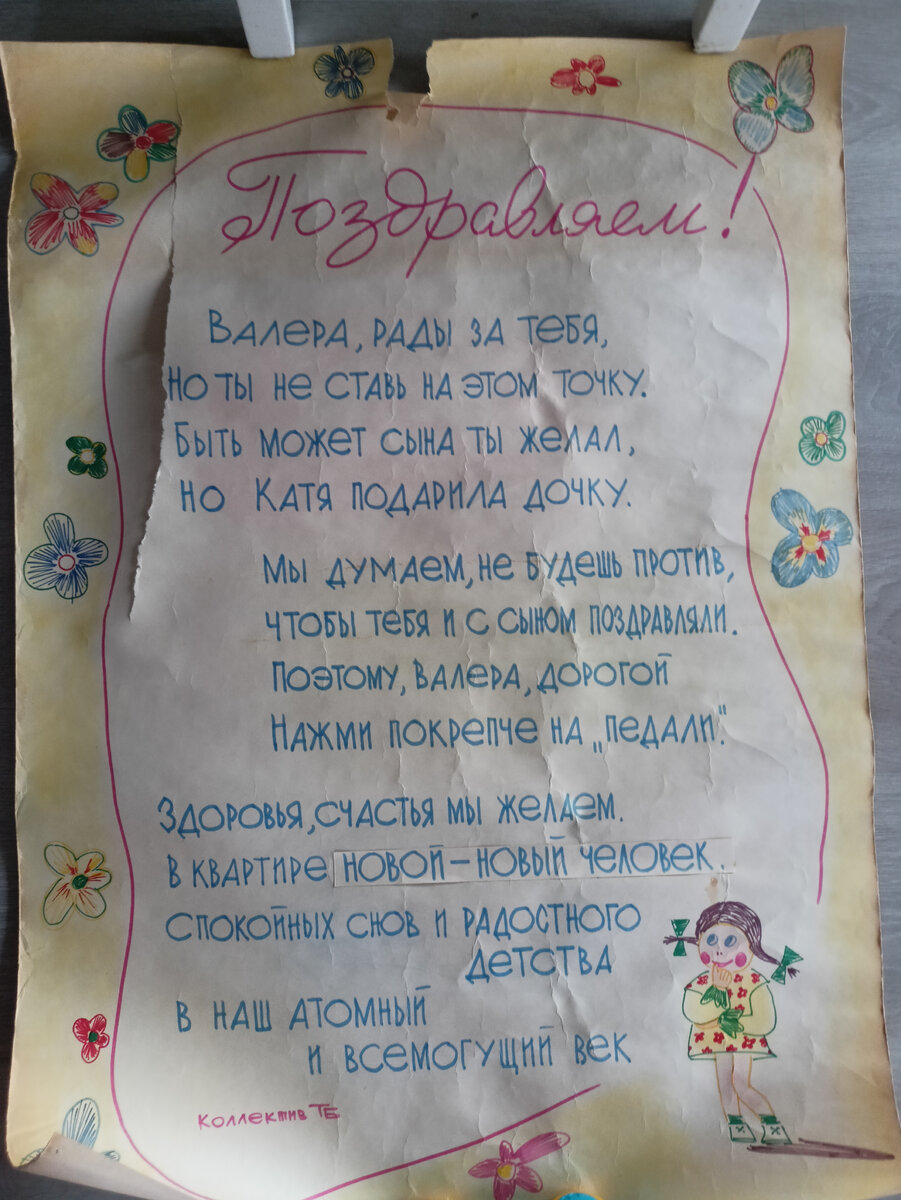 Поздравляем!
Валера, рады за тебя,
Но ты не ставь на этом точку.
Быть может сына ты желал,
но Катя подарила дочку.
Мы думаем, не будешь против,
чтобы тебя и с сыном поздравляли.
Поэтому, Валера, дорогой
Нажми покрепче на „педали".
Здоровья, счастья мы желаем.
В квартире новой – новый человек.
спокойных снов и радостного
детства
в наш атомный
и всемогущий век
Коллектив ТБ